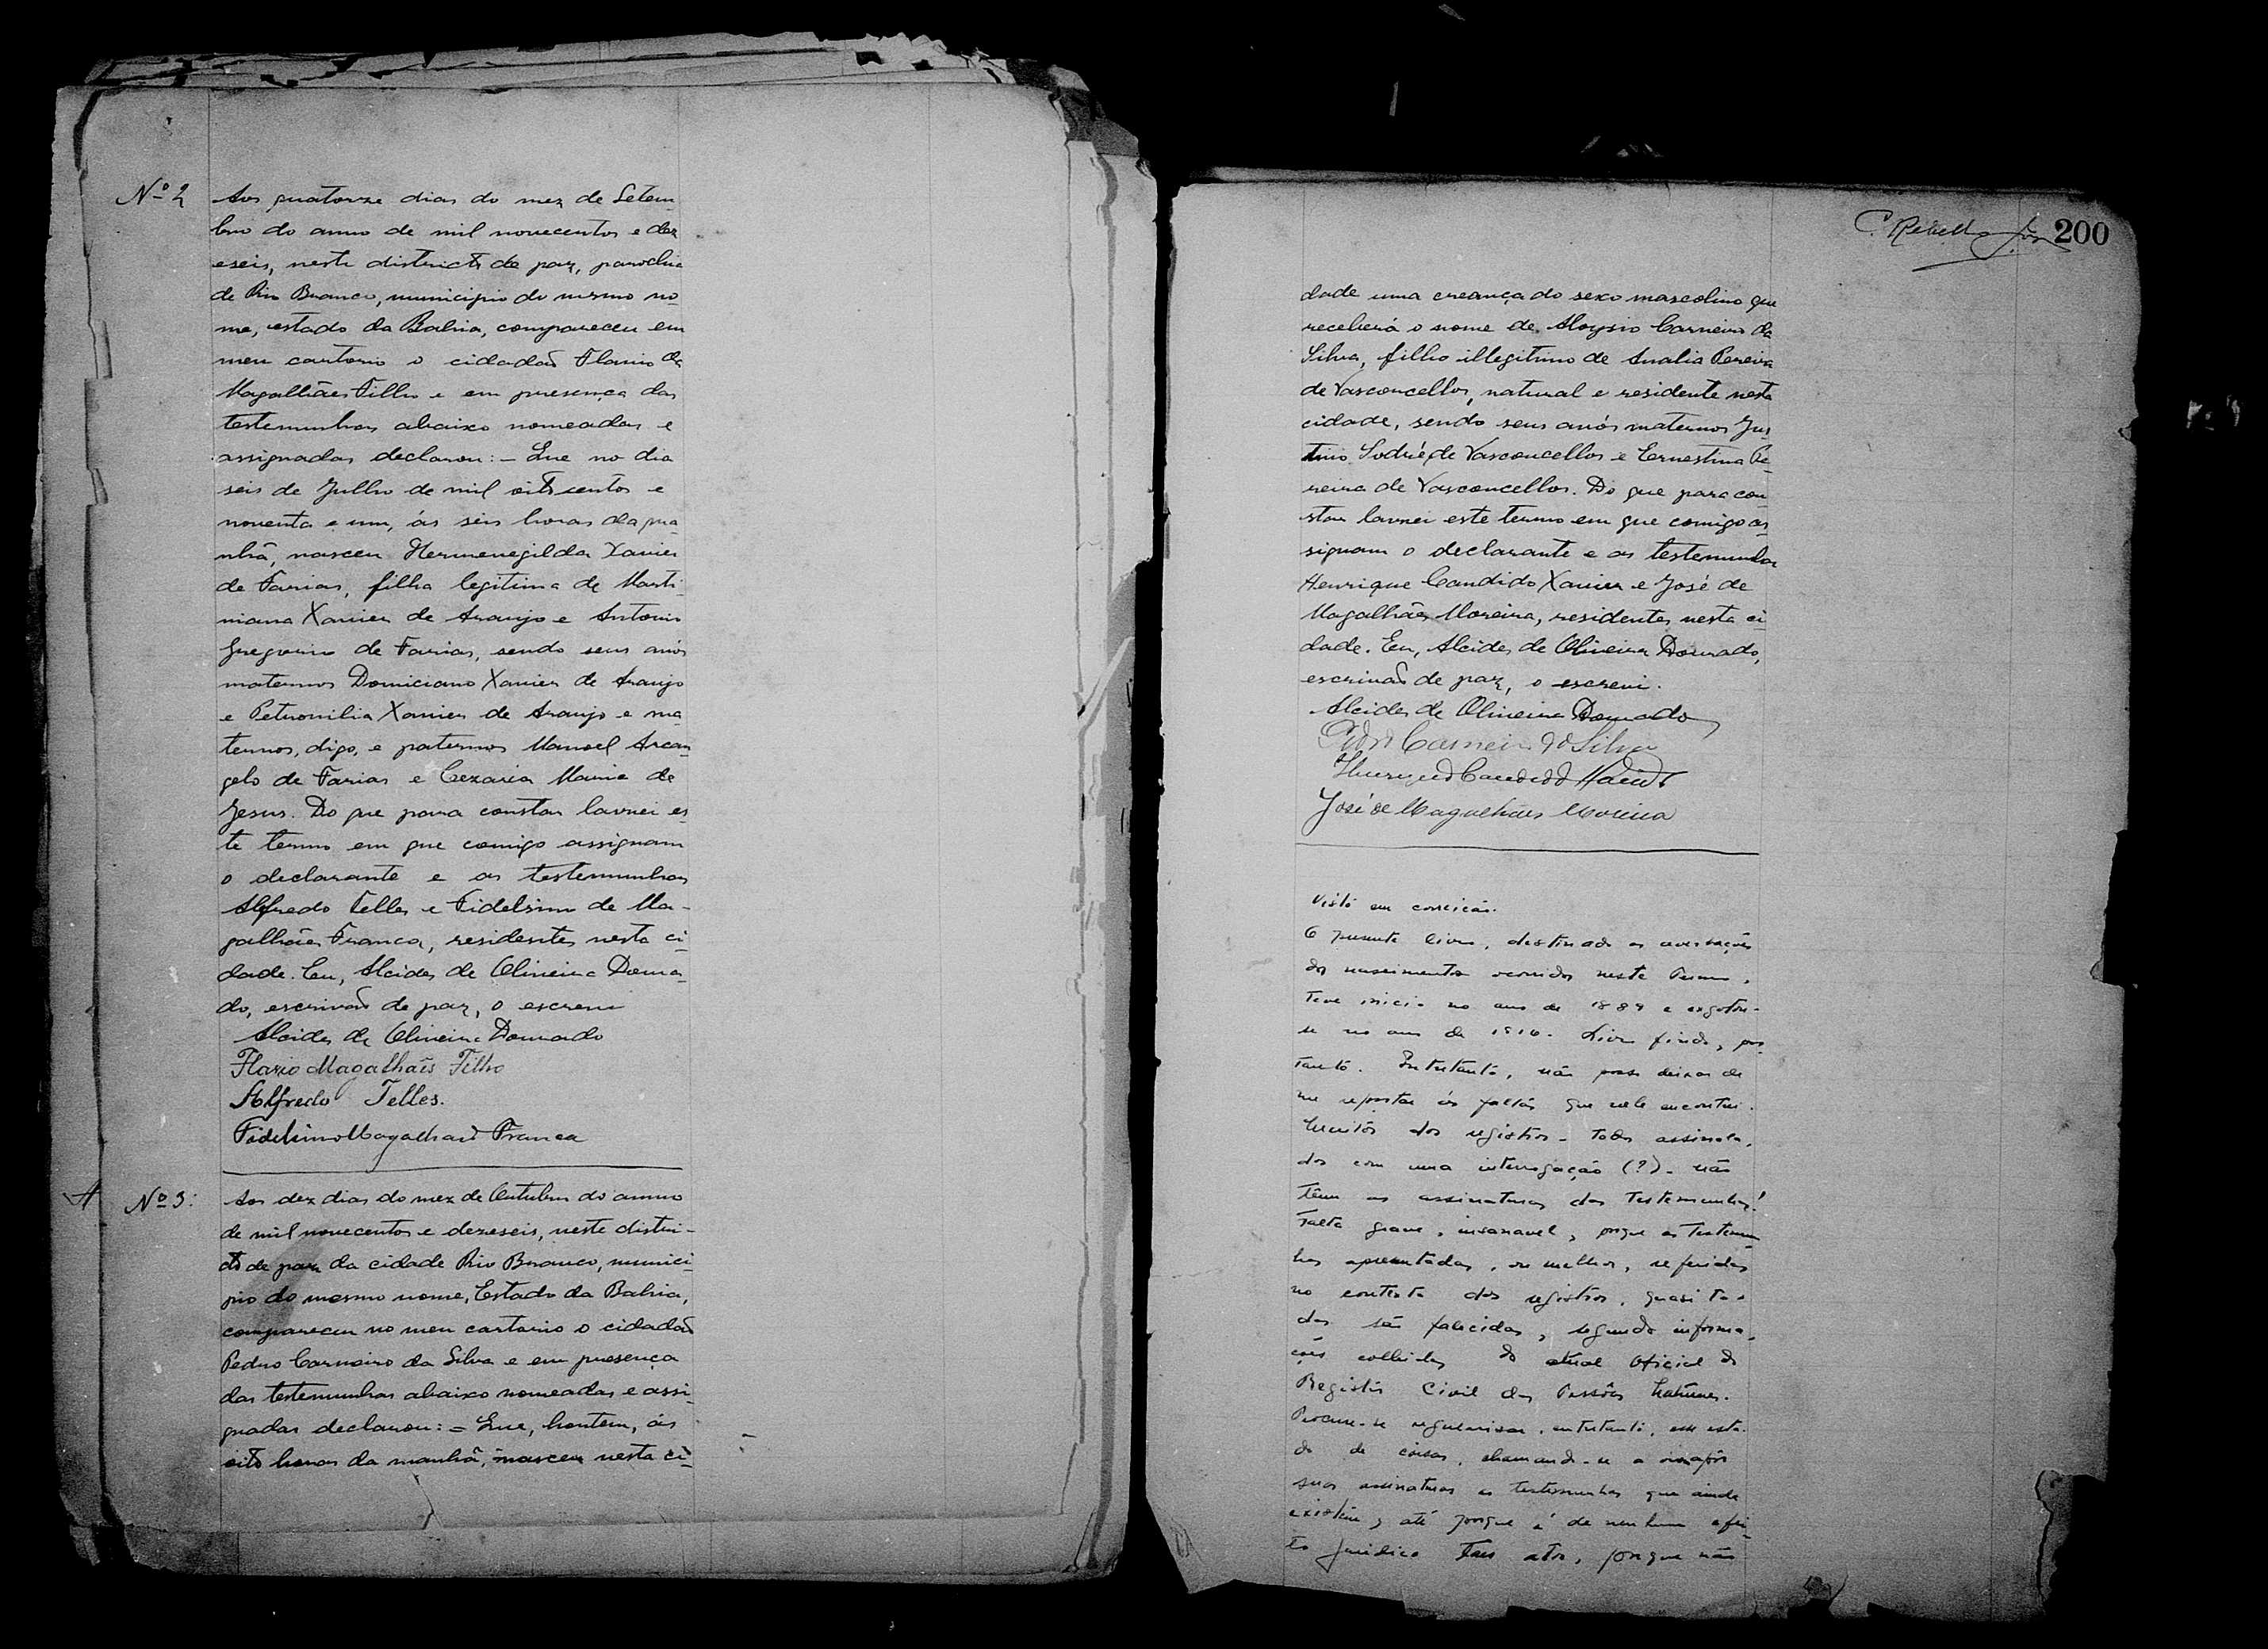 Nº 2
Aos quatorze dias do mez de Setem-
bro do anno de mil novecentos e dez
eseis, neste districto de paz, parochia
de Rio Branco, municipio do mesmo no-
me, estado da Bahia, compareceu em
meu cartorio o cidadão Flavio de
Magalhães Filho e em presença das
testemunhas abaixo nomeadas e
assignadas declarou: - Que no dia
seis de Julho de mil oitocentos e
noventa e um, ás seis horas da ma
nhã, nasceu Hermenegilda Xavier
de Farias, filha legitima de Marti
niana Xavier de Araujo e Antonio
Gregorio de Farias, sendo seus avós
maternos Domiciano Xavier de Araujo
e Petronilia Xavier de Araujo e ma
ternos, digo, e paternos Manoel Arcan
gelo de Farias e Cezaria Maria de
Jesus. Do que para constar lavrei es
te termo em que comigo assignam
o declarante e as testemunhas
Alfredo Telles e Fidelsino de Ma-
galhães Franca, residentes nesta ci-
dade. Eu, Alcides de Oliveira Doura-
do, escrivão de paz, o escrevi
Alcides de Oliveira Dourado
Flavio Magalhães Filho
Alfredo Telles.
Fidelsino Magalhães Franca
Nº 3:
Aos dez dias do mez de Outubro do anno
de mil novecentos e dezeseis, neste distri-
cto de paz da cidade Rio Branco, munici-
pio do mesmo nome, Estado da Bahia,
compareceu no meu cartorio o cidadão
Pedro Carneiro da Silva e em presença
das testemunhas abaixo nomeadas e assi-
gnadas declarou: = Que, hontem, ás
oito horas da manhã, nasceu nesta ci-
C. Rebello
200
dade uma creança do sexo mascolino que
receberá o nome de Aloysio Carneiro da
Silva, filho illegitimo de Analia Pereira
de Vasconcellos, natural e residente nesta
cidade, sendo seus avós maternos Jus
tino Sodré de Vasconcellos e Ernestina Pe-
reira de Vasconcellos. Do que para con
star lavrei este termo em que comigo as
signam o declarante e as testemunhas
Henrique Candido Xavier e José de
Magalhães Moreira, residentes nesta ci
dade. Eu, Alcides de Oliveira Dourado,
escrivão de paz, o escrevi.
Alcides de Oliveira Dourado
Pedro Carneiro da Silva
Candido
José de Magalhães Moreira
Visto em correição.
O presente livro, destinado as averbações
dos nascimentos ocorridos neste Termo,
teve inicio no ano de 1889 e exgotou-
se no ano de 1916. Livro findo, por
tanto. Entretanto, não posso deixar de
me reportar ás faltas que nele encontrei.
Muitos dos registros - todos assinala-
dos com uma interrogação (?) - não
têm as assinaturas das testemunhas!
Falta grave, insanavel, porque as testemu
nhas apresentadas, ou melhor, referidas
no contexto dos registros, quasi to-
das são falecidas, segundo informa-
ções colhidas do atual Oficial do
Registro Civil das Pessôas Naturaes.
Procure-se regularisar, entretanto, esse esta-
do de coisas, chamando-se a
suas assinaturas as testemunhas que ainda
existem, até porque é de nenhum efei-
to juridico tais atos, porque não